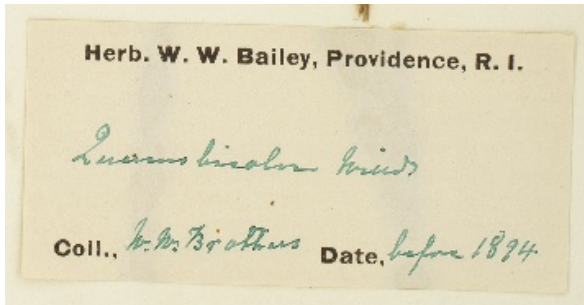 Herb. W. W. Bailey, Providence, R. I.
Quercus bicolor Willd
Coll., W. W. Brothers Date, before 1894